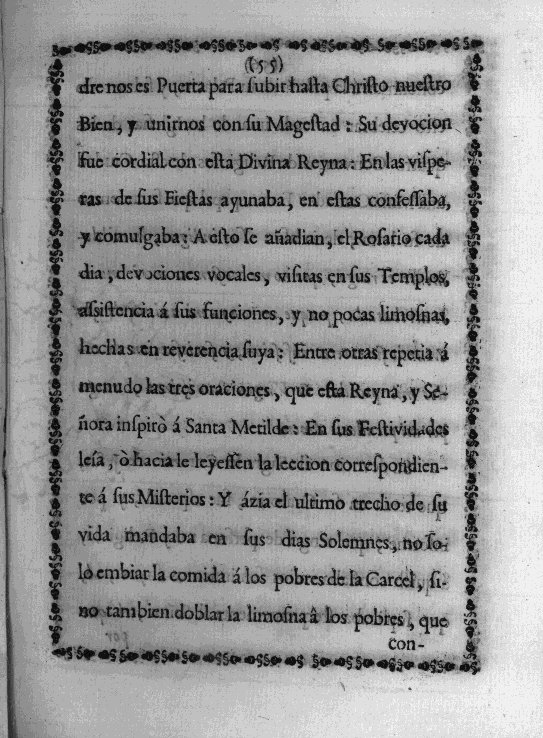 (55)
dre nos es Puerta para ſubir haſta Chriſto nueſtro
Bien, y unirnos con ſu Mageſtad: Su devocion
fue cordial con eſta Divina Reyna: En las viſpe-
ras de ſus Fieſtas ayunaba, en eſtas confeſſaba,
y comulgaba: A eſto ſe añadian, el Roſario cada
dia, devociones vocales, viſitas en ſus Templos,
aſsiſtencia á ſus funciones, y no pocas limoſnas,
hechas en reverencia ſuya: Entre otras repetia á
menudo las tres oraciones, que eſta Reyna, y Se-
ñora inſpirò á Santa Metilde: En ſus Feſtividades
leía, ò hacia le leyeſſen la leccion correſpondien-
te á ſus Miſterios: Y ázia el ultimo trecho de ſu
vida mandaba en ſus dias Solemnes, no ſo-
lo embiar la comida á los pobres de la Carcel, ſi-
no tambien doblar la limoſna â los pobres, que
con-